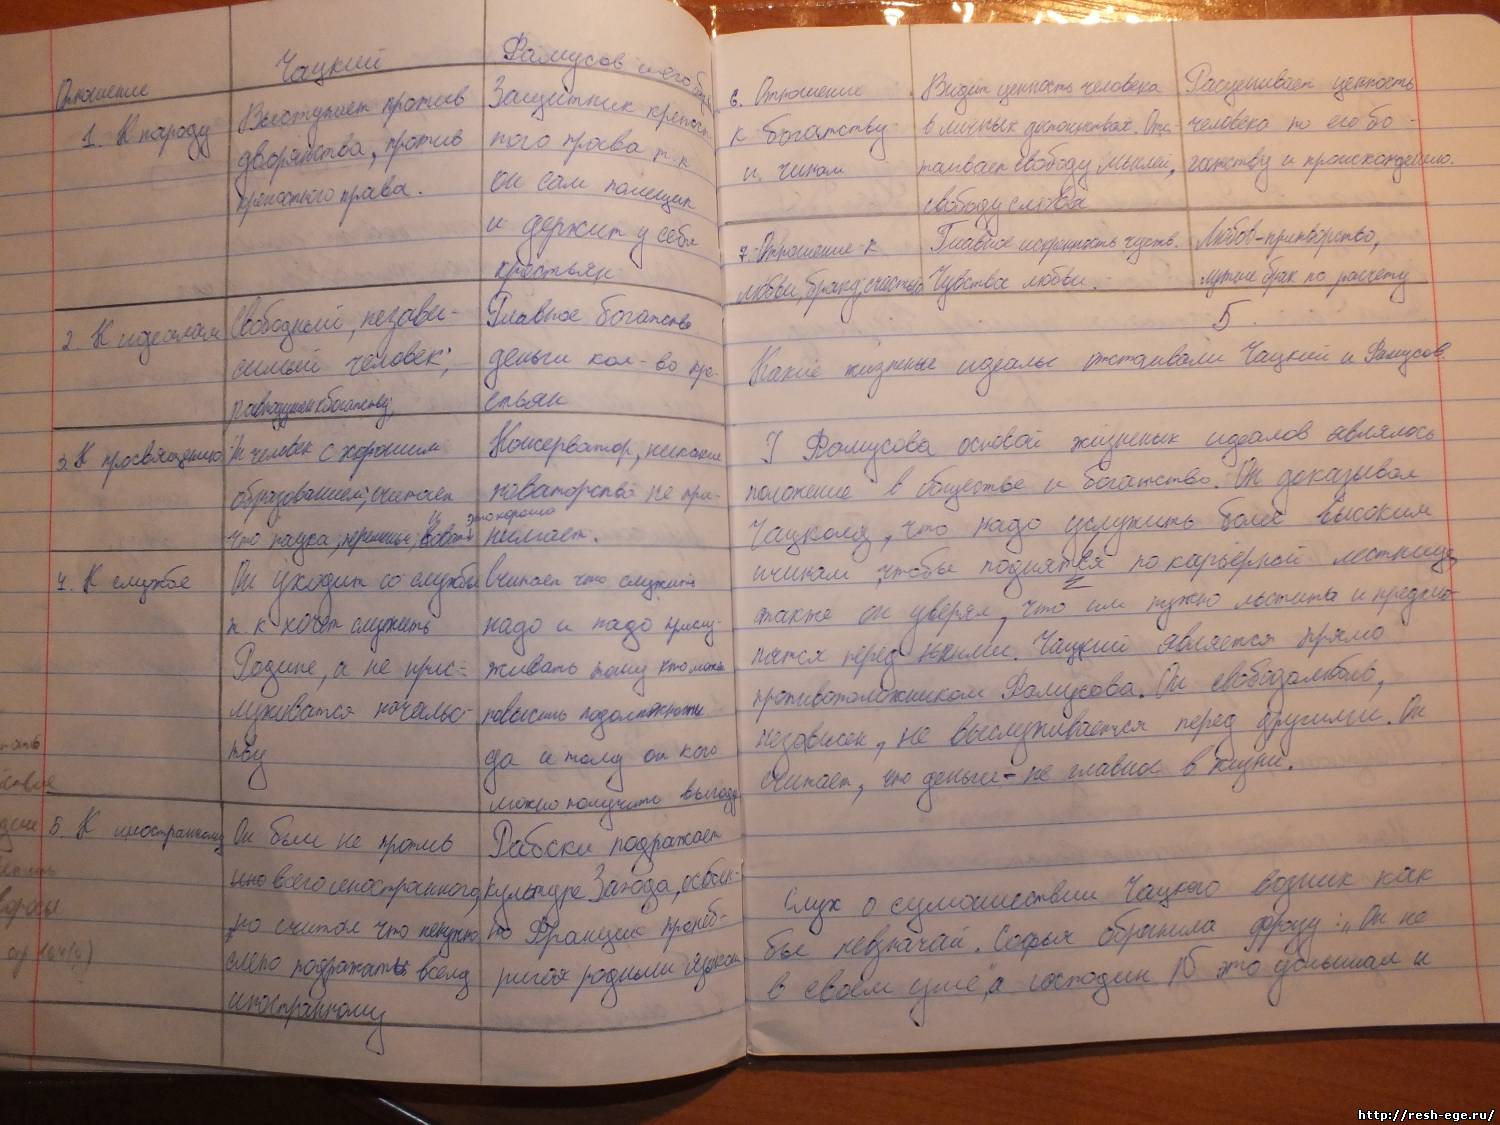 Отношение
Чацкий
Фамусов и его
1. К народу
Выступает против
дворянства, против
крепостного права.
Защитник крепост-
ного права т.к
он сам помещик
и держит у себя
крестьян
2. К идеалам
Свободный, незави-
симый человек;
равнодушен к богатству;
Главное богатство
деньги кол-во кре-
стьян
3. К просвящению
человек с хорошим
образованием, считает
что наука,
и это хорошо
Консерватор, никакие
новаторства не при-
нимает.
4. К службе
Он уходит со службы
т к хочет служить
Родине, а не прис-
луживатся началь
тву
считает что служить
надо и надо прислу
живать тому кто может
повысить
да и тому от кого
можно получить выгоду
5. К иностранному
Он был не против
всего иностранного,
но считал что ненужно
слепо подражать всему
иностранному
Рабски подражает
культуре Запада, особен-
но Франции преноб-
ригая родным языком
6. Отношение
к богатству
и чинам
Видит ценность человека
в личных достоинствах. Отс-
таивает свободу мыслей,
свободу слова
Расценивает ценность
человека по его бо-
гатству и происхождению.
7. Отношение к
любви, браку, счастью
Главное искренность чуств.
Чувства любви.
Любов-притворство,
лутше брак по расчету
5
Какие жизненые идеалы отстаивали Чацкий и Фамусов.
У Фамусова основой жизненых идеалов являлось
положение в обществе и богатство. Он доказывал
Чацкому, что надо услужить более высоким
чинам, чтобы поднятся по карьерной лестнице,
также он уверял, что им нужно льстить и
перед ними. Чацкий является прямо
противоположником Фамусова. Он
независем, не выслуживается перед другими. Он
считает, что деньги - не главное в жизни.
Слух о сумошествии Чацкого возник как
бы невзначай. Софья обранила фразу: „Он не
в своем уме", а господин N это услышал и
http://resh-ege.ru/